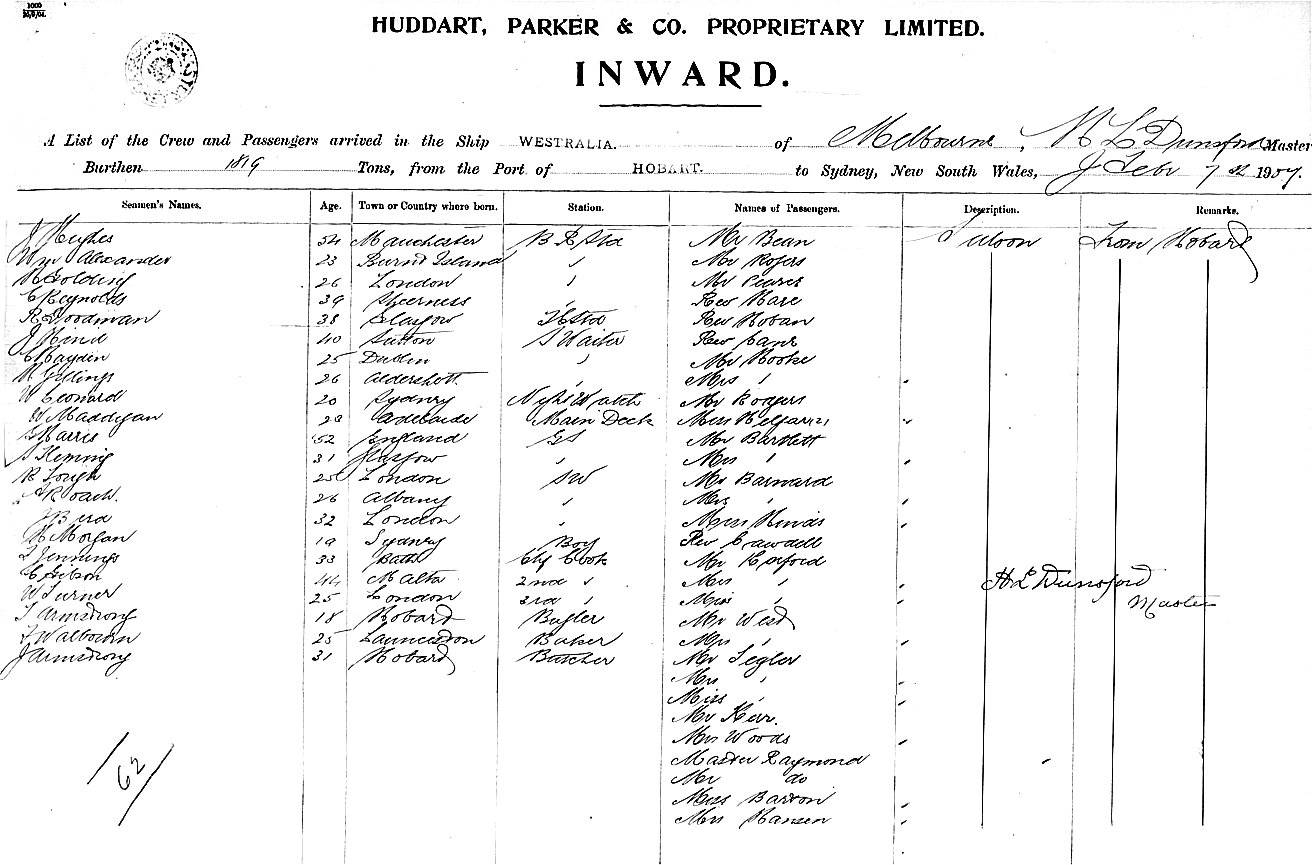 HUDDART, PARKER & CO. PROPRIETARY LIMITED.
INWARD.
A List of the Crew and Passengers arrived in the Ship WESTRALIA. of Melbourne, H L Dunsford Master
Burthen 1819 Tons, from the Port of HOBART. to Sydney, New South Wales, Feby 7 1907.
Seamen's Names. Age. Town or Country where born. Station. Names of Passengers. Description. Remarks.
J Hughes 34 Manchester B R Std Mr Bean Saloon From Hobart
Wm Alexander 23 Burnt Island " Mr Rogers
R Golding 26 London " Mr Pearce
C Reynolds 39 Sheerness " Rev Hare
R Goodman 38 Glasgow Rev Hoban
J Hind 40 Sutton S Waiter Rev
C Haydin 25 Dublin " Mr Hooke
26 Aldershott " Mrs "
W Leonard 20 Sydney Night Watch Mr Rodgers
W Maddigan 28 Adelaide Main Deck Miss
S Harris 52 England GS Mr Bartlett
S Fleming 31 Glasgow " Mrs "
R Lough 25 London SW Mr Barward
A Roach 26 Albany " Mrs "
J Bird 32 London " Miss Hinds
H Morgan 19 Sydney Boy Rev Crawdell
L Jennings 33 Bath Chf Cook Mr Oxford
C Gibson 44 Malta 2nd " Mrs " H L Dunsford
W Turner 25 London 3rd " Miss " Master
T Armstrong 18 Hobart Bugler Mr West
F Walbourn 25 Launceston Baker Mrs "
J Armstrong 31 Hobart Butcher Mr Segler
Mrs "
Miss "
Mr Kerr.
Mrs Woods
Master Raymond
Mr do
Miss Barton
Mrs Hansen
62